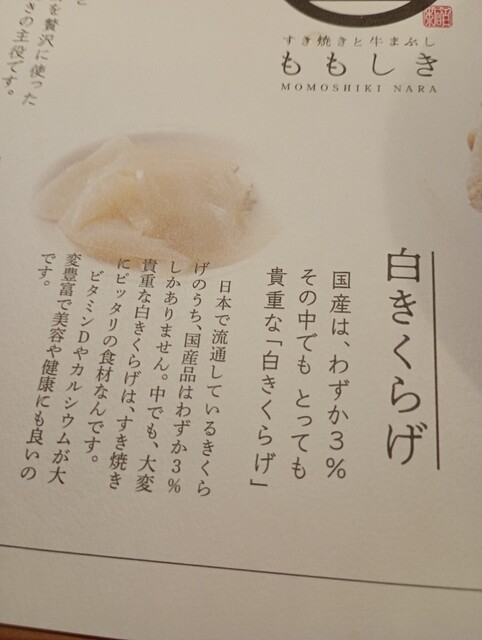 すき焼きと牛まぶし
ももしき
MOMOSHIKI NARA
白きくらげ
国産は、わずか3%
その中でも とっても
貴重な「白きくらげ」
日本で流通しているきくら
げのうち、国産品はわずか3%
しかありません。中でも、大変
貴重な白きくらげは、すき焼き
にピッタリの食材なんです。
ビタミンDやカルシウムが大
変豊富で美容や健康にも良いの
です。
を贅沢に使った
きの主役です。